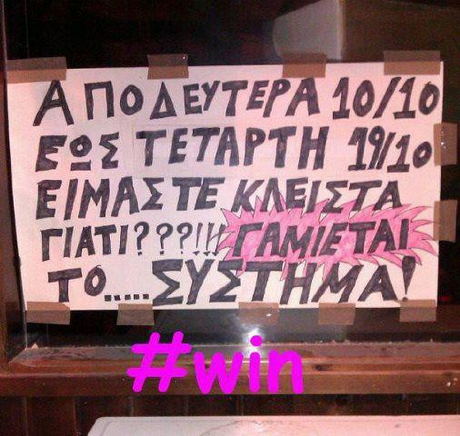 ΑΠΟ ΔΕΥΤΕΡΑ 10/10
ΕΩΣ ΤΕΤΑΡΤΗ 19/10
ΕΙΜΑΣΤΕ ΚΛΕΙΣΤΑ
ΓΙΑΤΙ???!!! ΓΑΜΙΕΤΑΙ
ΤΟ..... ΣΥΣΤΗΜΑ!
#win